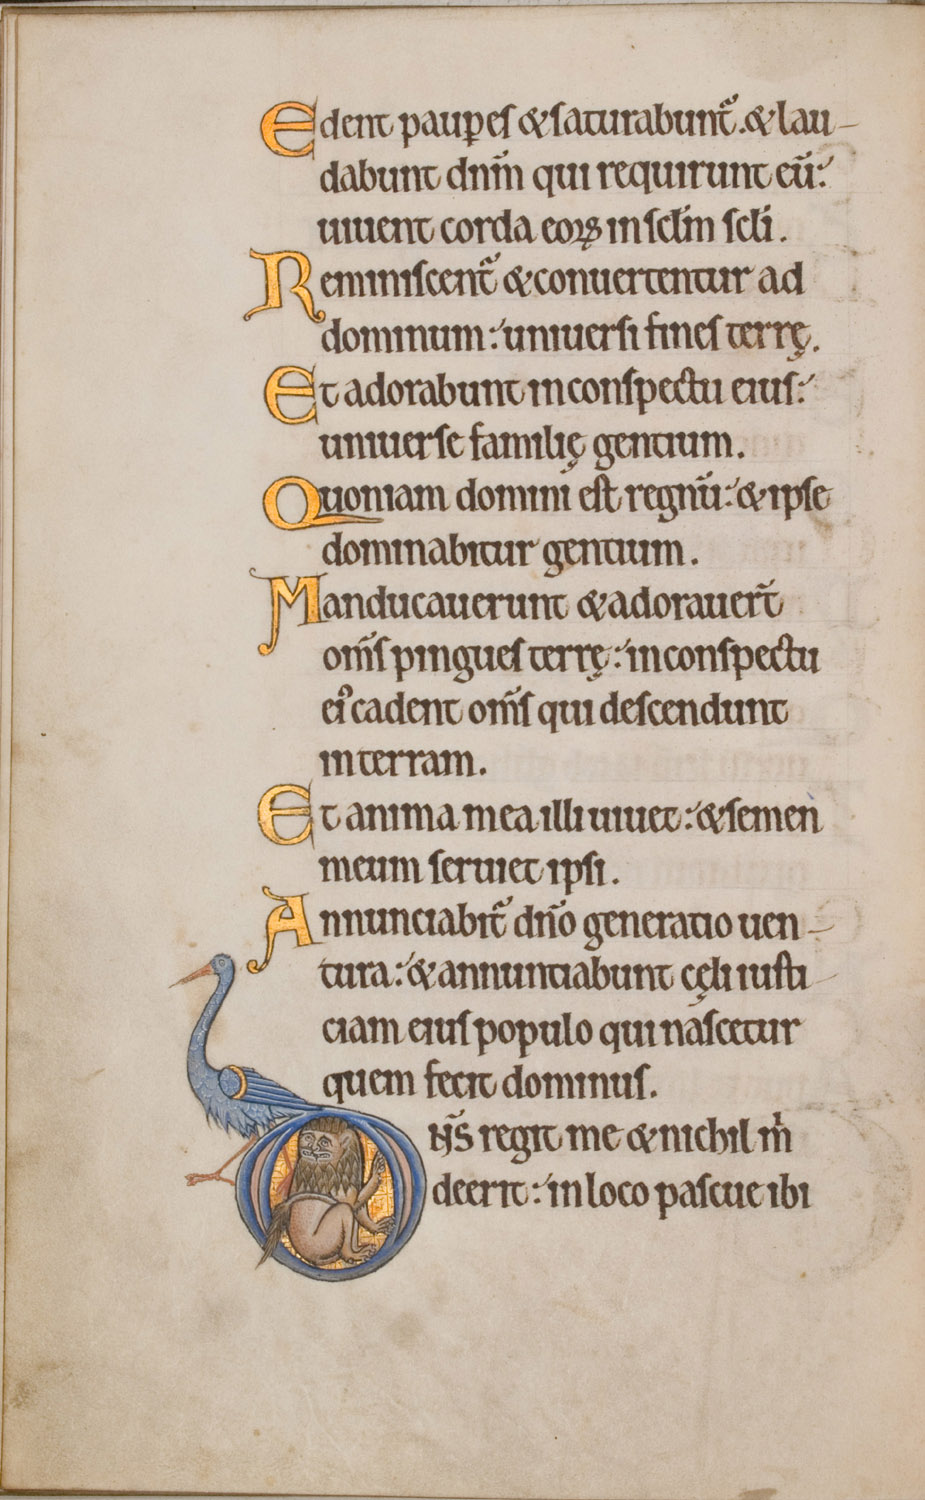 Edent paup̲es &saturabunt᷑.&lau–
dabunt dn̄m qui requirunt eū:
uiuent corda eoꝝ insc̄lm sc̄li.
Reminiscent᷑ &conuertentur ad
dominum: uniuersi fines terrę.
Et adorabunt inconspectu eius:
uniuerse familię gentium.
Quoniam domini est regnū: &ipse
dominabitur gentium.
Manducauerunt &adorauer̄t
om̄s pingues terrę: inconspectu
eiꝰ cadent om̄s qui descendunt
interram.
Et anima mea illi uiuet: &semen
meum seruiet ipsi.
Annunciabit᷑ dn̄o generatio uen–
tura: &annuntiabunt cęli iusti–
ciam eius populo qui nascetur
quem fecit dominus.
DN̄S regit me &nichil m̍
deerit: inloco pascue ibi